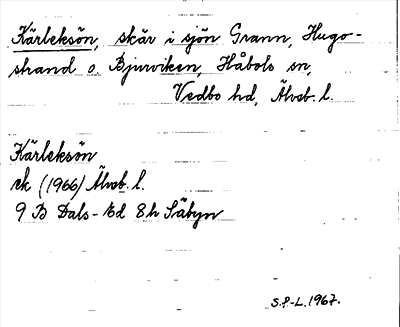 Kärleksön, skär i sjön Grann, Hugo-
strand o. Bjurviken, Håbols sn,
Vedbo hd, Älvsb. l.
Kärleksön
ek (1966) Älvsb. l.
9 B Dals-Ed 8h Säbyn
S.P-L. 1967.